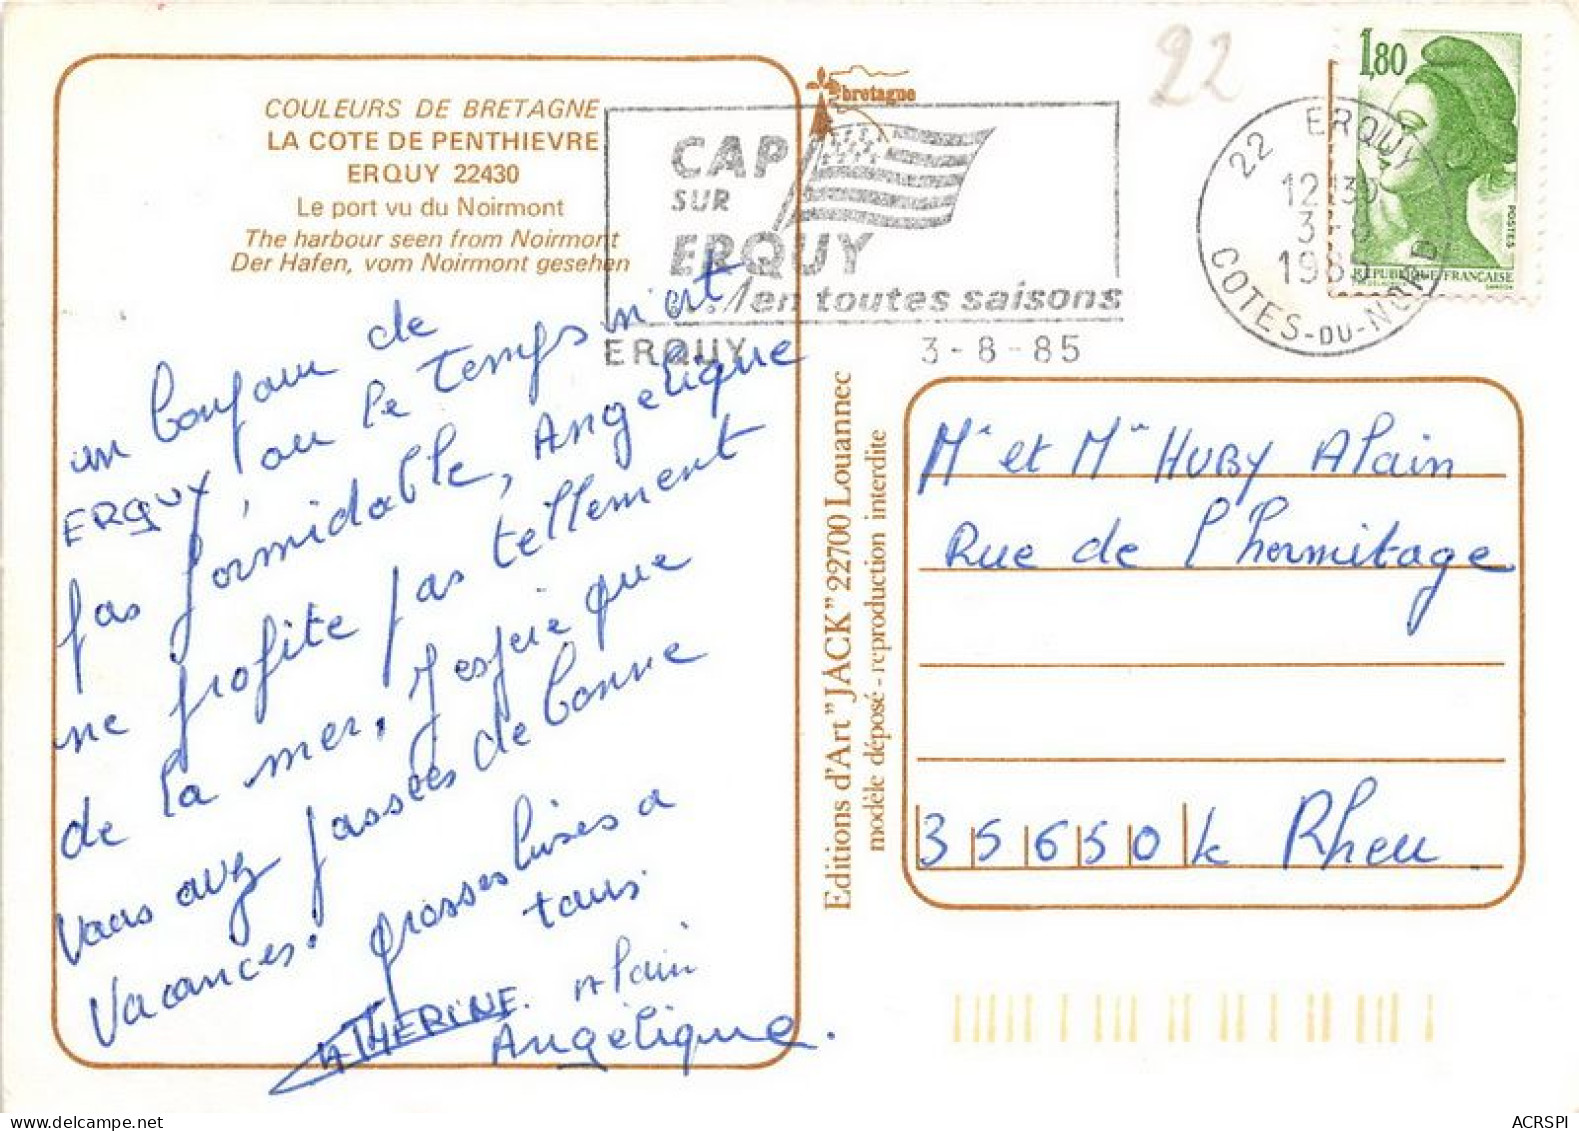 COULEURS DE BRETAGNE
LA COTE DE PENTHIEVRE
ERQUY 22430
Le port vu du Noirmont
The harbour seen from Noirmont
Der Hafen, vom Noirmont gesehen
un bonjour de
ERQUY, ou le temps n'est
pas formidable, Angélique
ne profite pas tellement
de la mer, j'espère que
vous avez passées de bonne
vacances. grosses bises a
tous.
CATHERINE. Alain
Angélique.
bretagne
CAP
SUR
ERQUY
en toutes saisons
ERQUY 3-8-85
22
22 ERQUY
12H30
3-8
1985
COTES-DU-NORD
1,80
POSTES
REPUBLIQUE FRANÇAISE
Editions d'Art "JACK" 22700 Louannec
modèle déposé - reproduction interdite
Mr et Mme HUBY Alain
Rue de l'hermitage
35650 le Rheu
ACRSPI